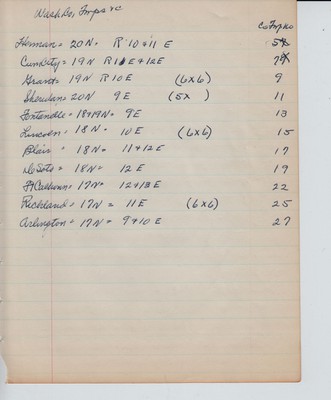 Wash Co, Tmps &c
Co Tmp No
Herman = 20N = R 10 & 11 E
Cum City = 19 N R 11 E & 12 E 7
Grant = 19N R 10 E (6x6) 9
Sheridan = 20N 9 E (5x ) 11
Fontanelle = 18 & 19N = 9 E 13
Lincoln = 18 N = 10 E (6x6) 15
Blair " 18N = 11 & 12 E 17
De Soto = 18N = 12 E 19
Ft Calhoun = 17N = 12 & 13 E 22
Richland = 17N = 11 E (6x6) 25
Arlington = 17N = 9 & 10 E 27